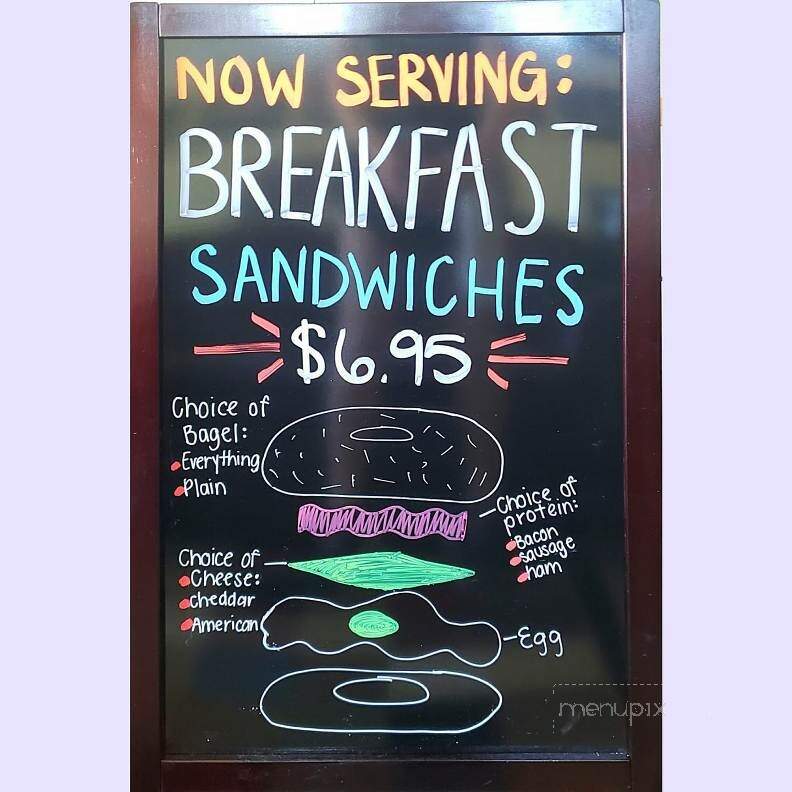 NOW SERVING:
BREAKFAST
SANDWICHES
$6.95
Choice of
Bagel:
Everything
Plain
Choice of
protein:
Bacon
sausage
ham
Choice of
Cheese:
cheddar
American
Egg
menupix